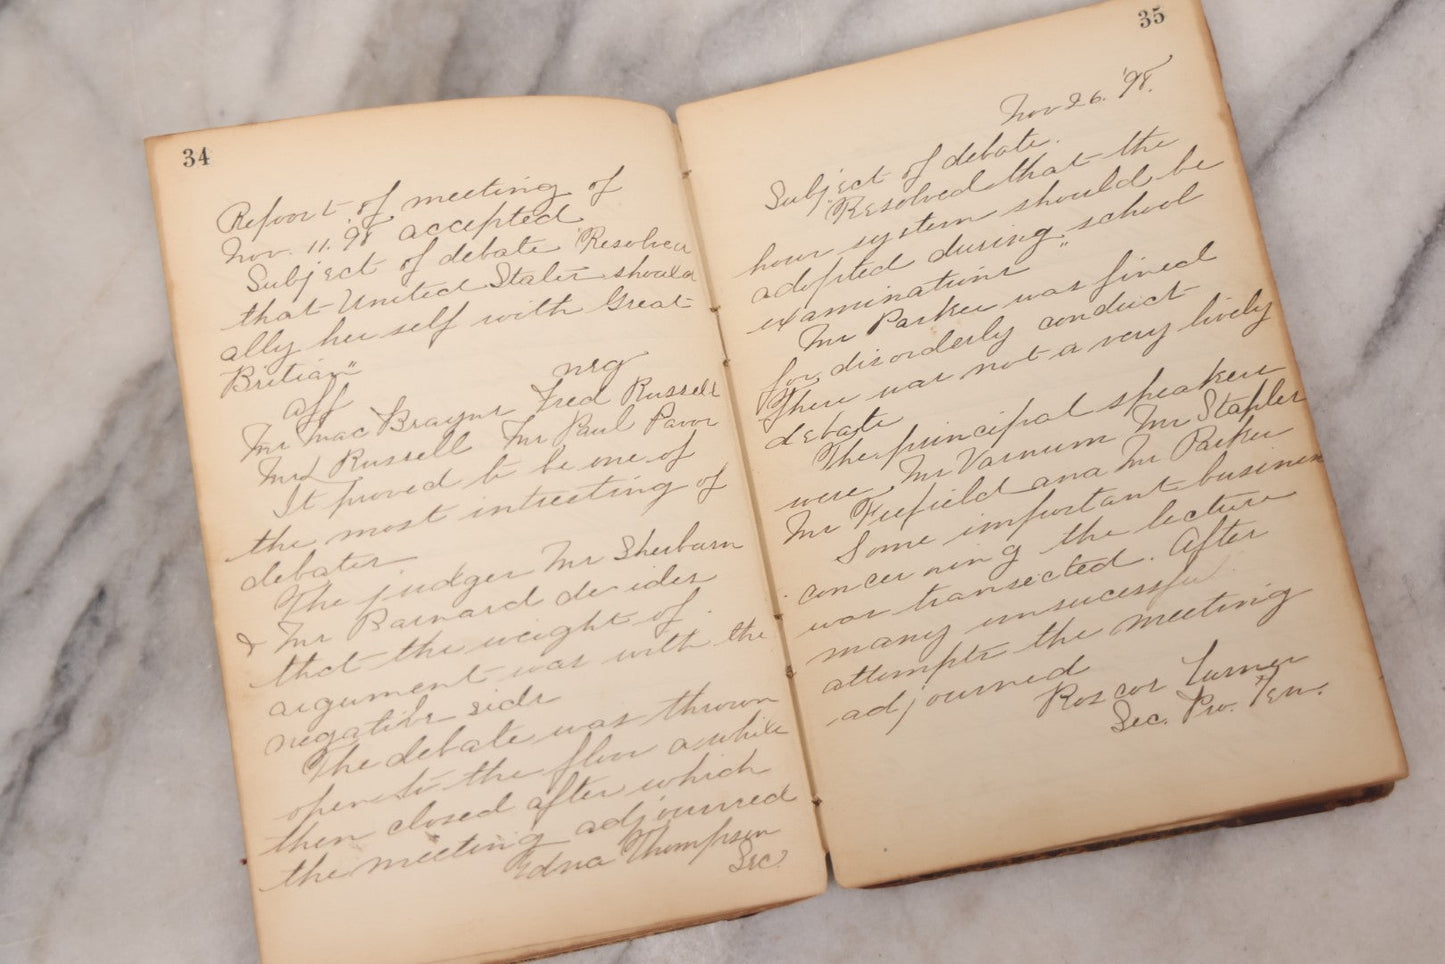 34
Report of meeting of
Nov. 11. 98 accepted
Subject of debate "Resolved
that United States should
ally her self with Great
Britian"
aff neg
Mr Mac Brayne Fred Russell
Mr L Russell Mr Paul Pavor
It proved to be one of
the most intresting of
debates
The judges Mr Sherburn
& Mr Barnard decides
that the weight of
argument was with the
negative side
The debate was thrown
open to the floor a while
then closed after which
the meeting adjourned
Edna Thompson
Sec.
35
Nov 26. '98.
Subject of debate.
"Resolved that the
hour system should be
adopted during school
examinations"
Mr Parker was fined
for disorderly conduct
There was not a very lively
debate
The principal speakers
were Mr Varnum Mr Stapler
Mr Fifield and Mr Parker
Some important business
concerning the lecture
was transected. After
many unsucessful
attempts the meeting
adjourned
Roscoe Turner
Sec. Pro. Tem.